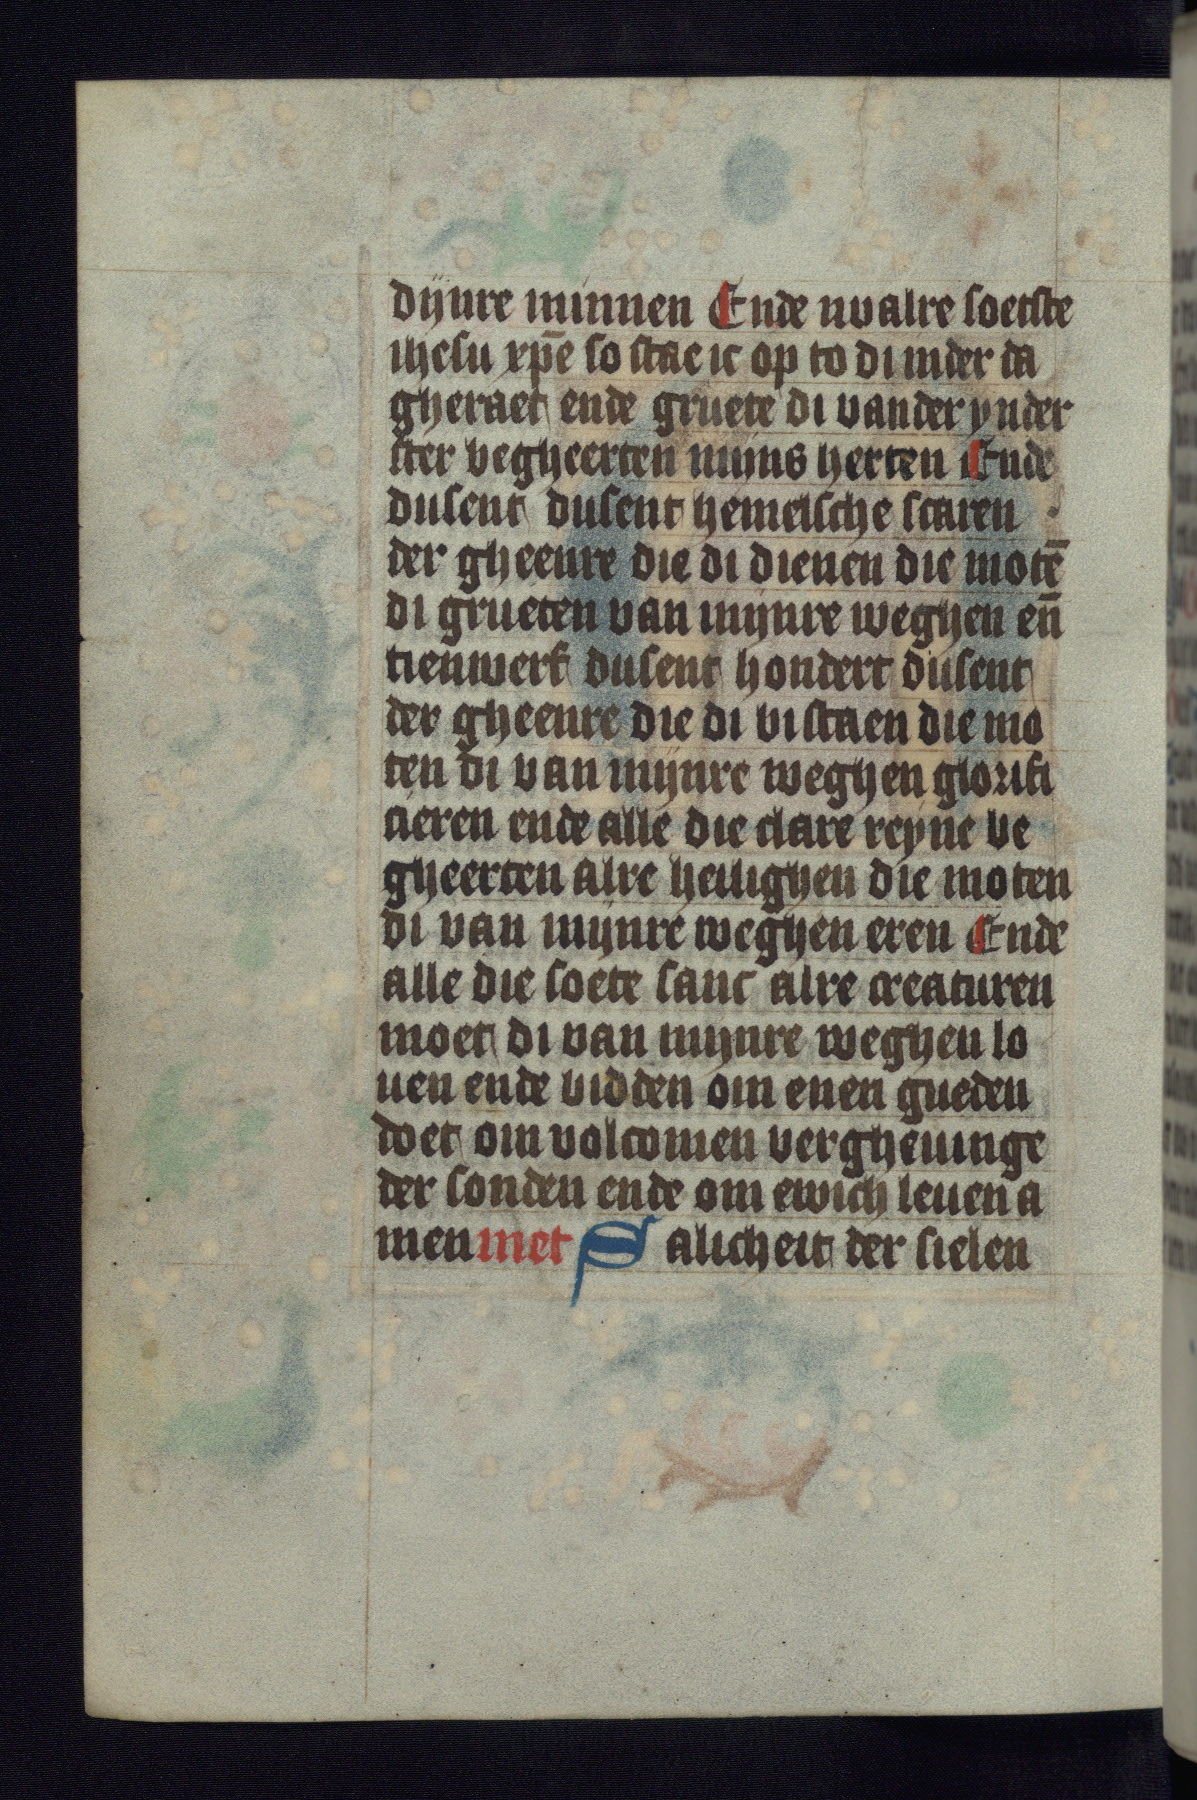 dijnre minnen Ende nu alre soetste
ihesu xp̄e so stae ic op to di inder da
gheraet ende gruete di vander ynder
ster begheerten mijns herten Ende
dusent dusent hemelsche scaren
der gheenre die di dienen die motē
di grueten van mijnre weghen en̄
tienwerf dusent hondert dusent
der gheenre die di bi staen die mo
ten di van mijnre weghen glorifi
cieren ende alle die clare reyne be
gheerten alre heilighen die moten
di van mijnre weghen eren Ende
alle die soete sanc alre creaturen
moet di van mijnre weghen lo
uen ende bidden om enen gueden
doet om volcomen vergheuinge
der sonden ende om ewich leuen a
men met Salicheit der sielen